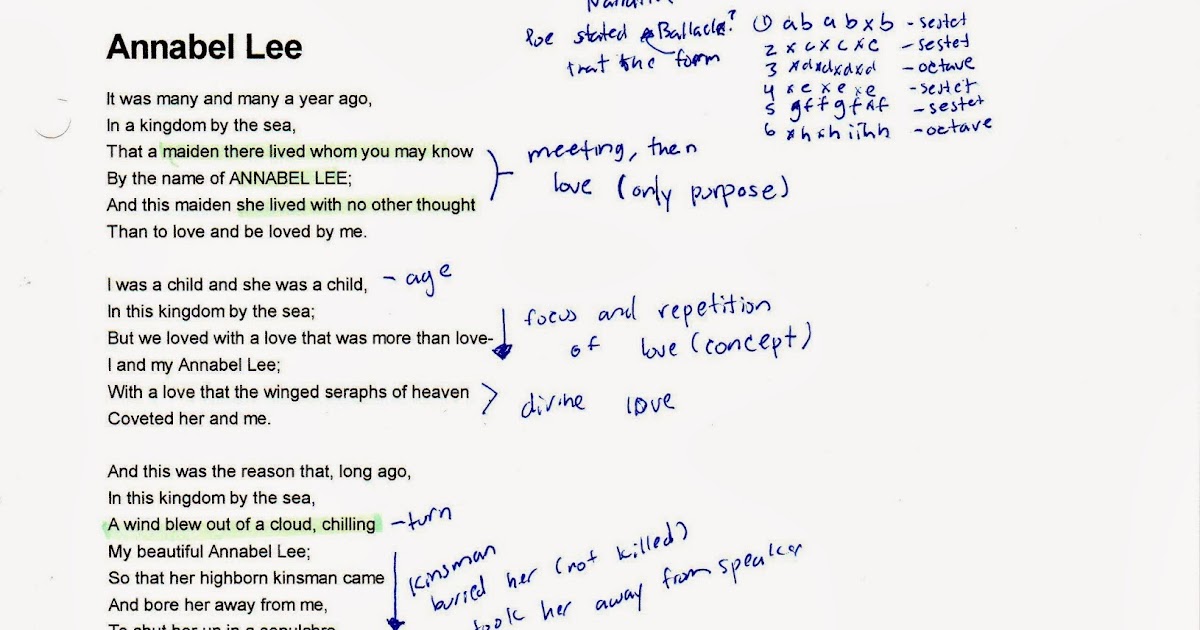 Annabel Lee
Poe stated Ballads?
that the form
① a b a b x b - sestet
2 x c x c x c - sestet
3 x d x d x d x d - octave
4 x e x e x e - sestet
5 g f f g f x f - sestet
6 x h x h i i h h - octave
It was many and many a year ago,
In a kingdom by the sea,
That a maiden there lived whom you may know
By the name of ANNABEL LEE;
And this maiden she lived with no other thought
Than to love and be loved by me.
meeting, then
love (only purpose)
I was a child and she was a child,
- age
In this kingdom by the sea;
But we loved with a love that was more than love-
I and my Annabel Lee;
focus and repetition
of love (concept)
With a love that the winged seraphs of heaven
Coveted her and me.
divine love
And this was the reason that, long ago,
In this kingdom by the sea,
A wind blew out of a cloud, chilling
- turn
My beautiful Annabel Lee;
So that her highborn kinsman came
And bore her away from me,
kinsman
buried her (not killed)
took her away from speaker